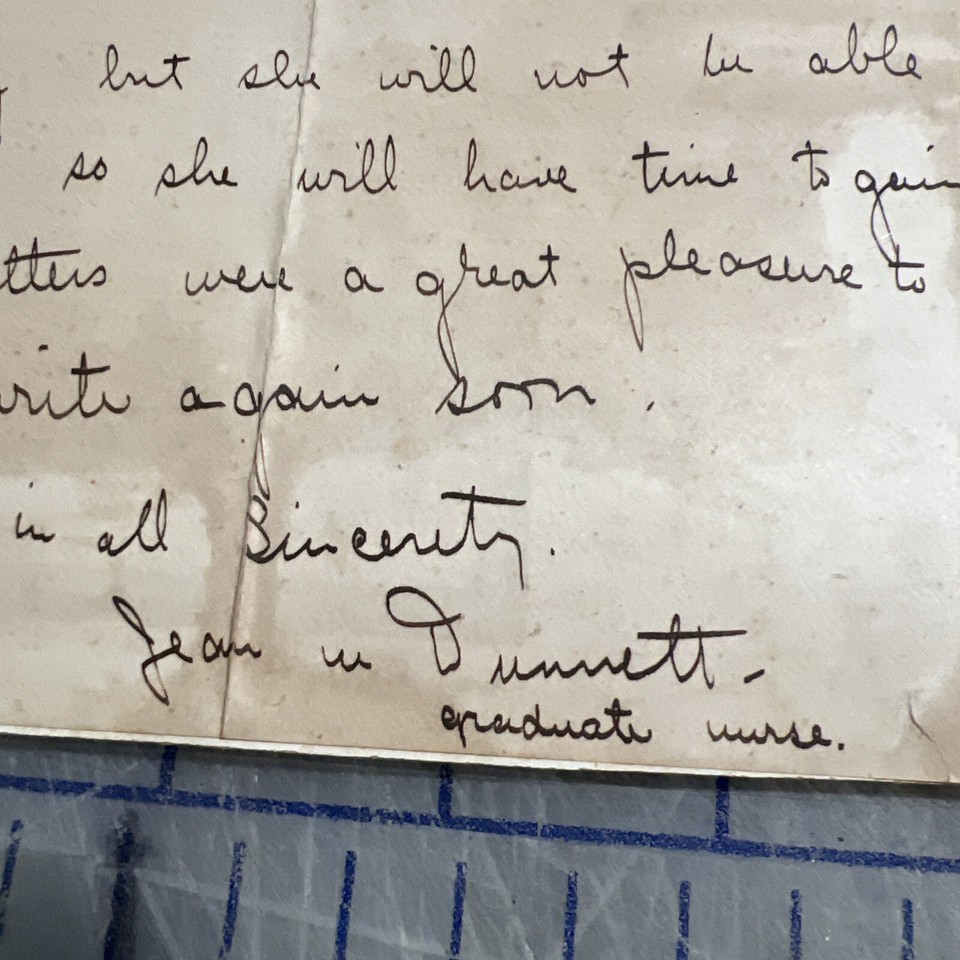 but she will not be able
so she will have time to gain
tters were a great pleasure to
write again soon.
in all Sincerety.
Jean w Dunnett-
graduate nurse.